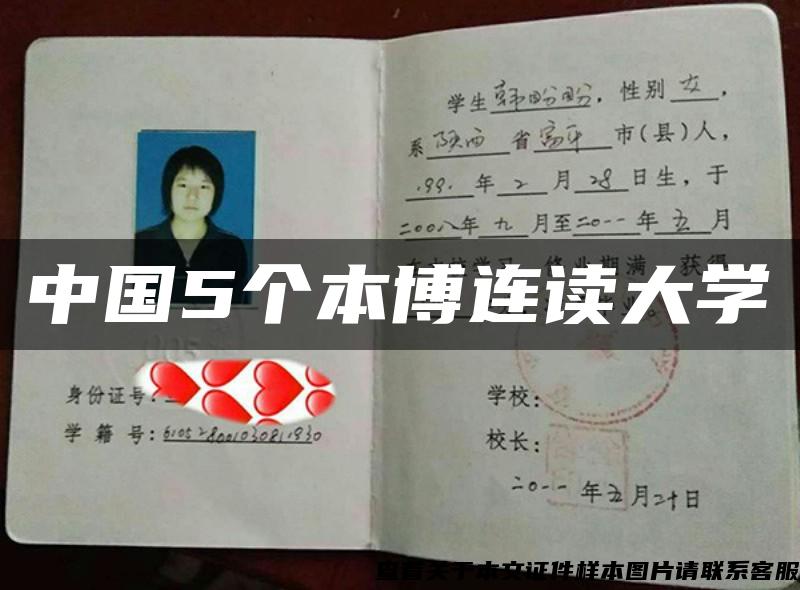 学生韩盼盼，性别女，
系陕西省富平市(县)人，
1991年2月28日生，于
二00八年九月至二0一一年五月
修业期满，获得
中国5个本博连读大学
身份证号：
学籍号：
学校：
校长：
二0一一年五月二十日
查看关于本文证件样本图片请联系客服